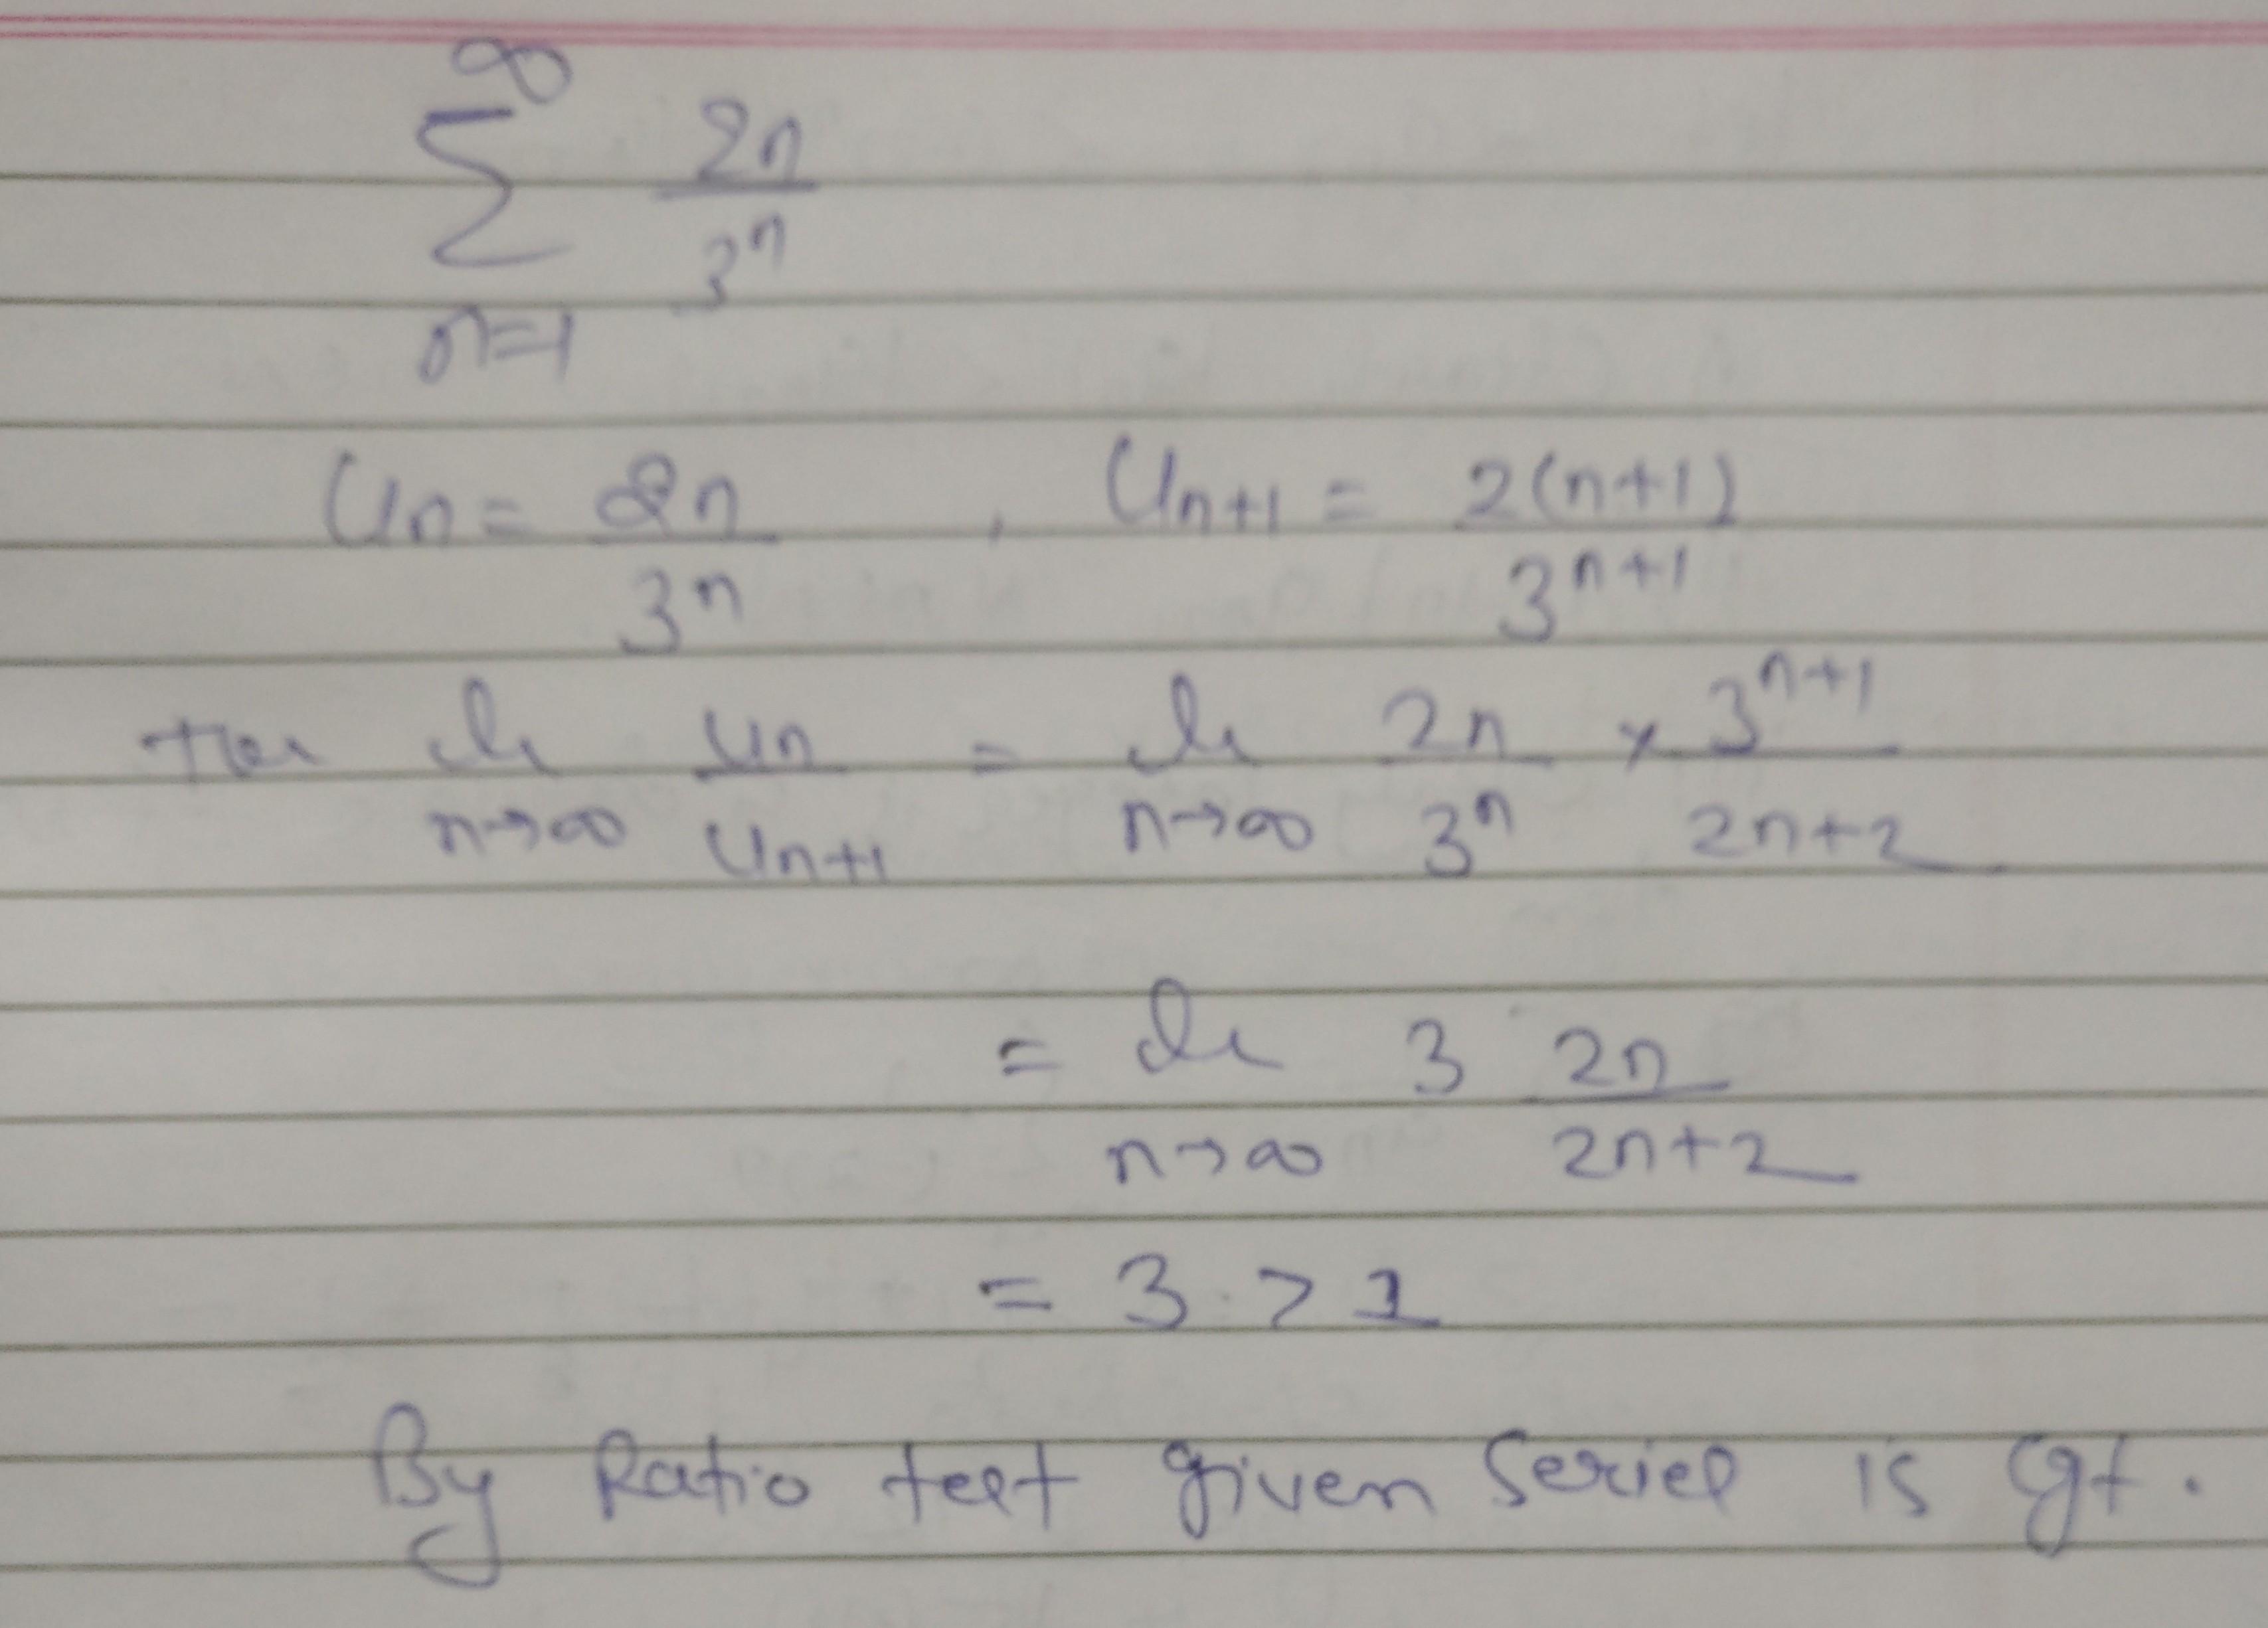 ∞
Σ 2n/3ⁿ
n=1
Un = 2n/3ⁿ , Un+1 = 2(n+1)/3ⁿ⁺¹
n→∞ Un/Un+1 = n→∞ 2n/3ⁿ × 3ⁿ⁺¹/2n+2
= n→∞ 3 2n/2n+2
= 3 > 1
By Ratio test given series is cgt.